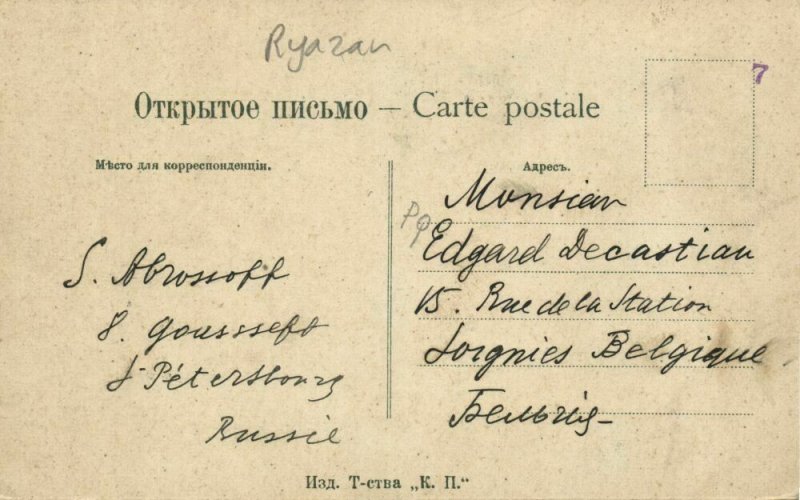 Ryazan
7
Открытое письмо — Carte postale
Мѣсто для корреспонденціи.
Адресъ.
S. Abrossoff
8. Goussseff
St Pétersbourg
Russie
Monsieur
Edgard Decastiau
15. Rue de la Station
Soignies Belgique
Бельгія
Изд. Т-ства „К. П.“